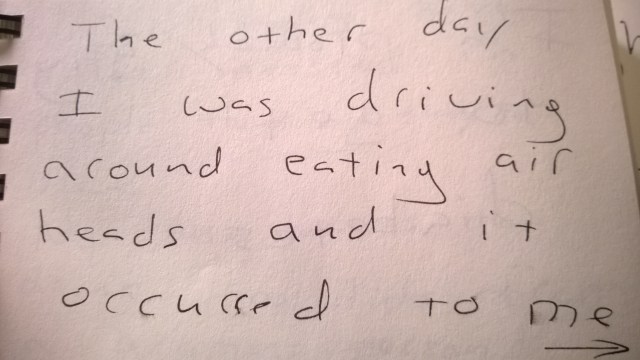 The other day
I was driving
around eating air
heads and it
occurred to me